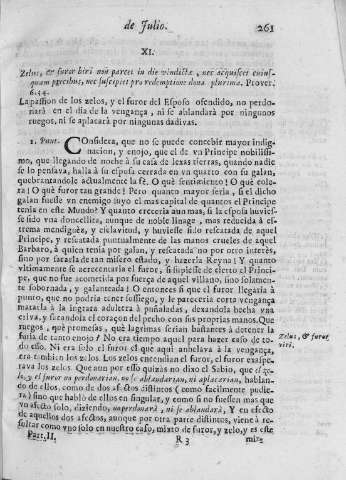 de Julio. 261
XI.
Zelus, & furor viri non parcet in die vindictæ, nec acquiescet cuius-
quam precibus, nec suscipiet pro redemptione dona plurima. Prover.
6.34.
La passion de los zelos, y el furor del Esposo ofendido, no perdo-
narà en el dia de la vengança, ni se ablandarà por ningunos
ruegos, ni se aplacarà por ningunas dadivas.
1. Punt. Considera, que no se puede concebir mayor indig-
nacion, y enojo, que el de vn Principe nobilissi-
mo, que llegando de noche à su casa de lexas tierras, quando nadie
se lo pensava, halla à su esposa cerrada en vn quarto con su galan,
quebrantandole actualmente la fè. O què sentimiento! O què cole-
ra! O què furor tan grande! Pero quanto mayor seria, si el dicho
galan fuesse vn enemigo suyo el mas capital de quantos el Principe
tenia en este Mundo? Y quanto creceria aun mas, si la esposa huvies-
se sido vna doncellita, aunque de noble linage, mas reducida à es-
trema mendiguès, y esclavitud, y huviesse sido rescatada de aquel
Principe, y rescatada puntualmente de las manos crueles de aquel
Barbaro, à quien tenia por galan, y rescatada no por otro interès,
sino por sacarla de tan misero estado, y hazerla Reyna! Y quanto
vltimamente se acrecentaria el furor, si supiesse de cierto el Princi-
pe, que no fue acometida por fuerça de aquel villano, sino solamen-
te sobornada, y galanteada! O entonces si que el furor llegaria à
punto, que no podria tener sossiego, y le pareceria corta vengança
matarla à la ingrata adultera à puñaladas, devandola hecha vna
criva, y sacandola el coraçon del pecho con sus propias manos. Què
ruegos, què promesas, què lagrimas serian bastantes à detener la
furia de tanto enojo? No era tiempo aquel para hazer caso de to-
do esso. Ni era solo el furor el que aqui anhelava à la vengança,
era tambien los zelos. Los zelos encendian el furor, el furor exaspe-
rava los zelos. Que aun por esso quizàs no dixo el Sabio, que el ze-
lo, y el furor no perdonarian, no se ablandarian, ni aplacarian, hablan-
do de ellos, como de dos afectos distintos (como facilmente pudie-
ra) sino que hablò de ellos en singular, y como si no fuessen mas que
vn afecto solo, diziendo, no perdonarà, ni se ablandarà, Y en efecto
de aquellos dos afectos, aunque por otra parte distintos, viene à re-
sultar como vno solo en nuestro caso, mixto de furor, y zelo, y es este
Zelus, & furor
viri.
Part. II. R 3 mix-